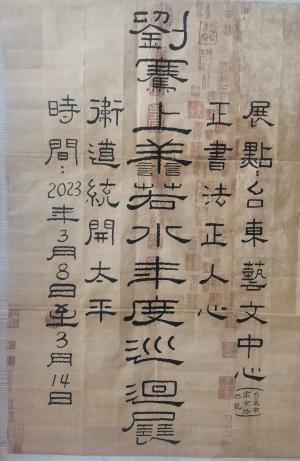 展點：台東藝文中心（台東市南京路
正書法正人心
劉騫上譱若水年度巡迴展
衛道統開太平
時間：2023年3月8日至3月14日